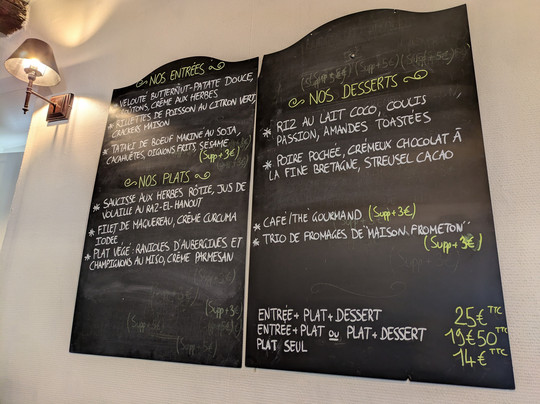 NOS ENTRÉES
VELOUTÉ BUTTERNUT-PATATE DOUCE,
CROÛTONS, CRÈME AUX HERBES
* RILLETTES DE POISSON AU CITRON VERT,
CRACKERS MAISON
* TATAKI DE BOEUF MARINÉ AU SOJA,
CACAHUÈTES, OIGNONS FRITS, SÉSAME
(Supp+3€)
NOS PLATS
* SAUCISSE AUX HERBES RÔTIE, JUS DE
VOLAILLE AU RAZ-EL-HANOUT
* FILET DE MAQUEREAU, CRÈME CURCUMA
IODÉE
* PLAT VÉGÉ : RAVIOLES D'AUBERGINES ET
CHAMPIGNONS AU MISO, CRÈME PARMESAN
(Supp+3€)
(Supp+5€)
(Supp+5€)
(Supp+5€) (Supp+5€)
NOS DESSERTS
* RIZ AU LAIT COCO, COULIS
PASSION, AMANDES TOASTÉES
* POIRE POCHÉE, CRÉMEUX CHOCOLAT À
LA FINE BRETAGNE, STREUSEL CACAO
* CAFÉ/THÉ GOURMAND (Supp+3€)
* TRIO DE FROMAGES DE "MAISON FROMETON"
(Supp+3€)
ENTRÉE + PLAT + DESSERT 25€ TTC
ENTRÉE + PLAT OU PLAT + DESSERT 19€50 TTC
PLAT SEUL 14€ TTC